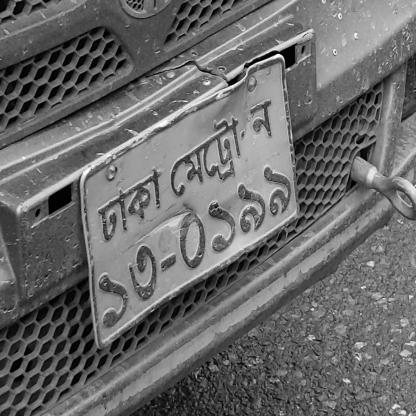 ঢাকা মেট্রো-ন
১৩-০১৯৯